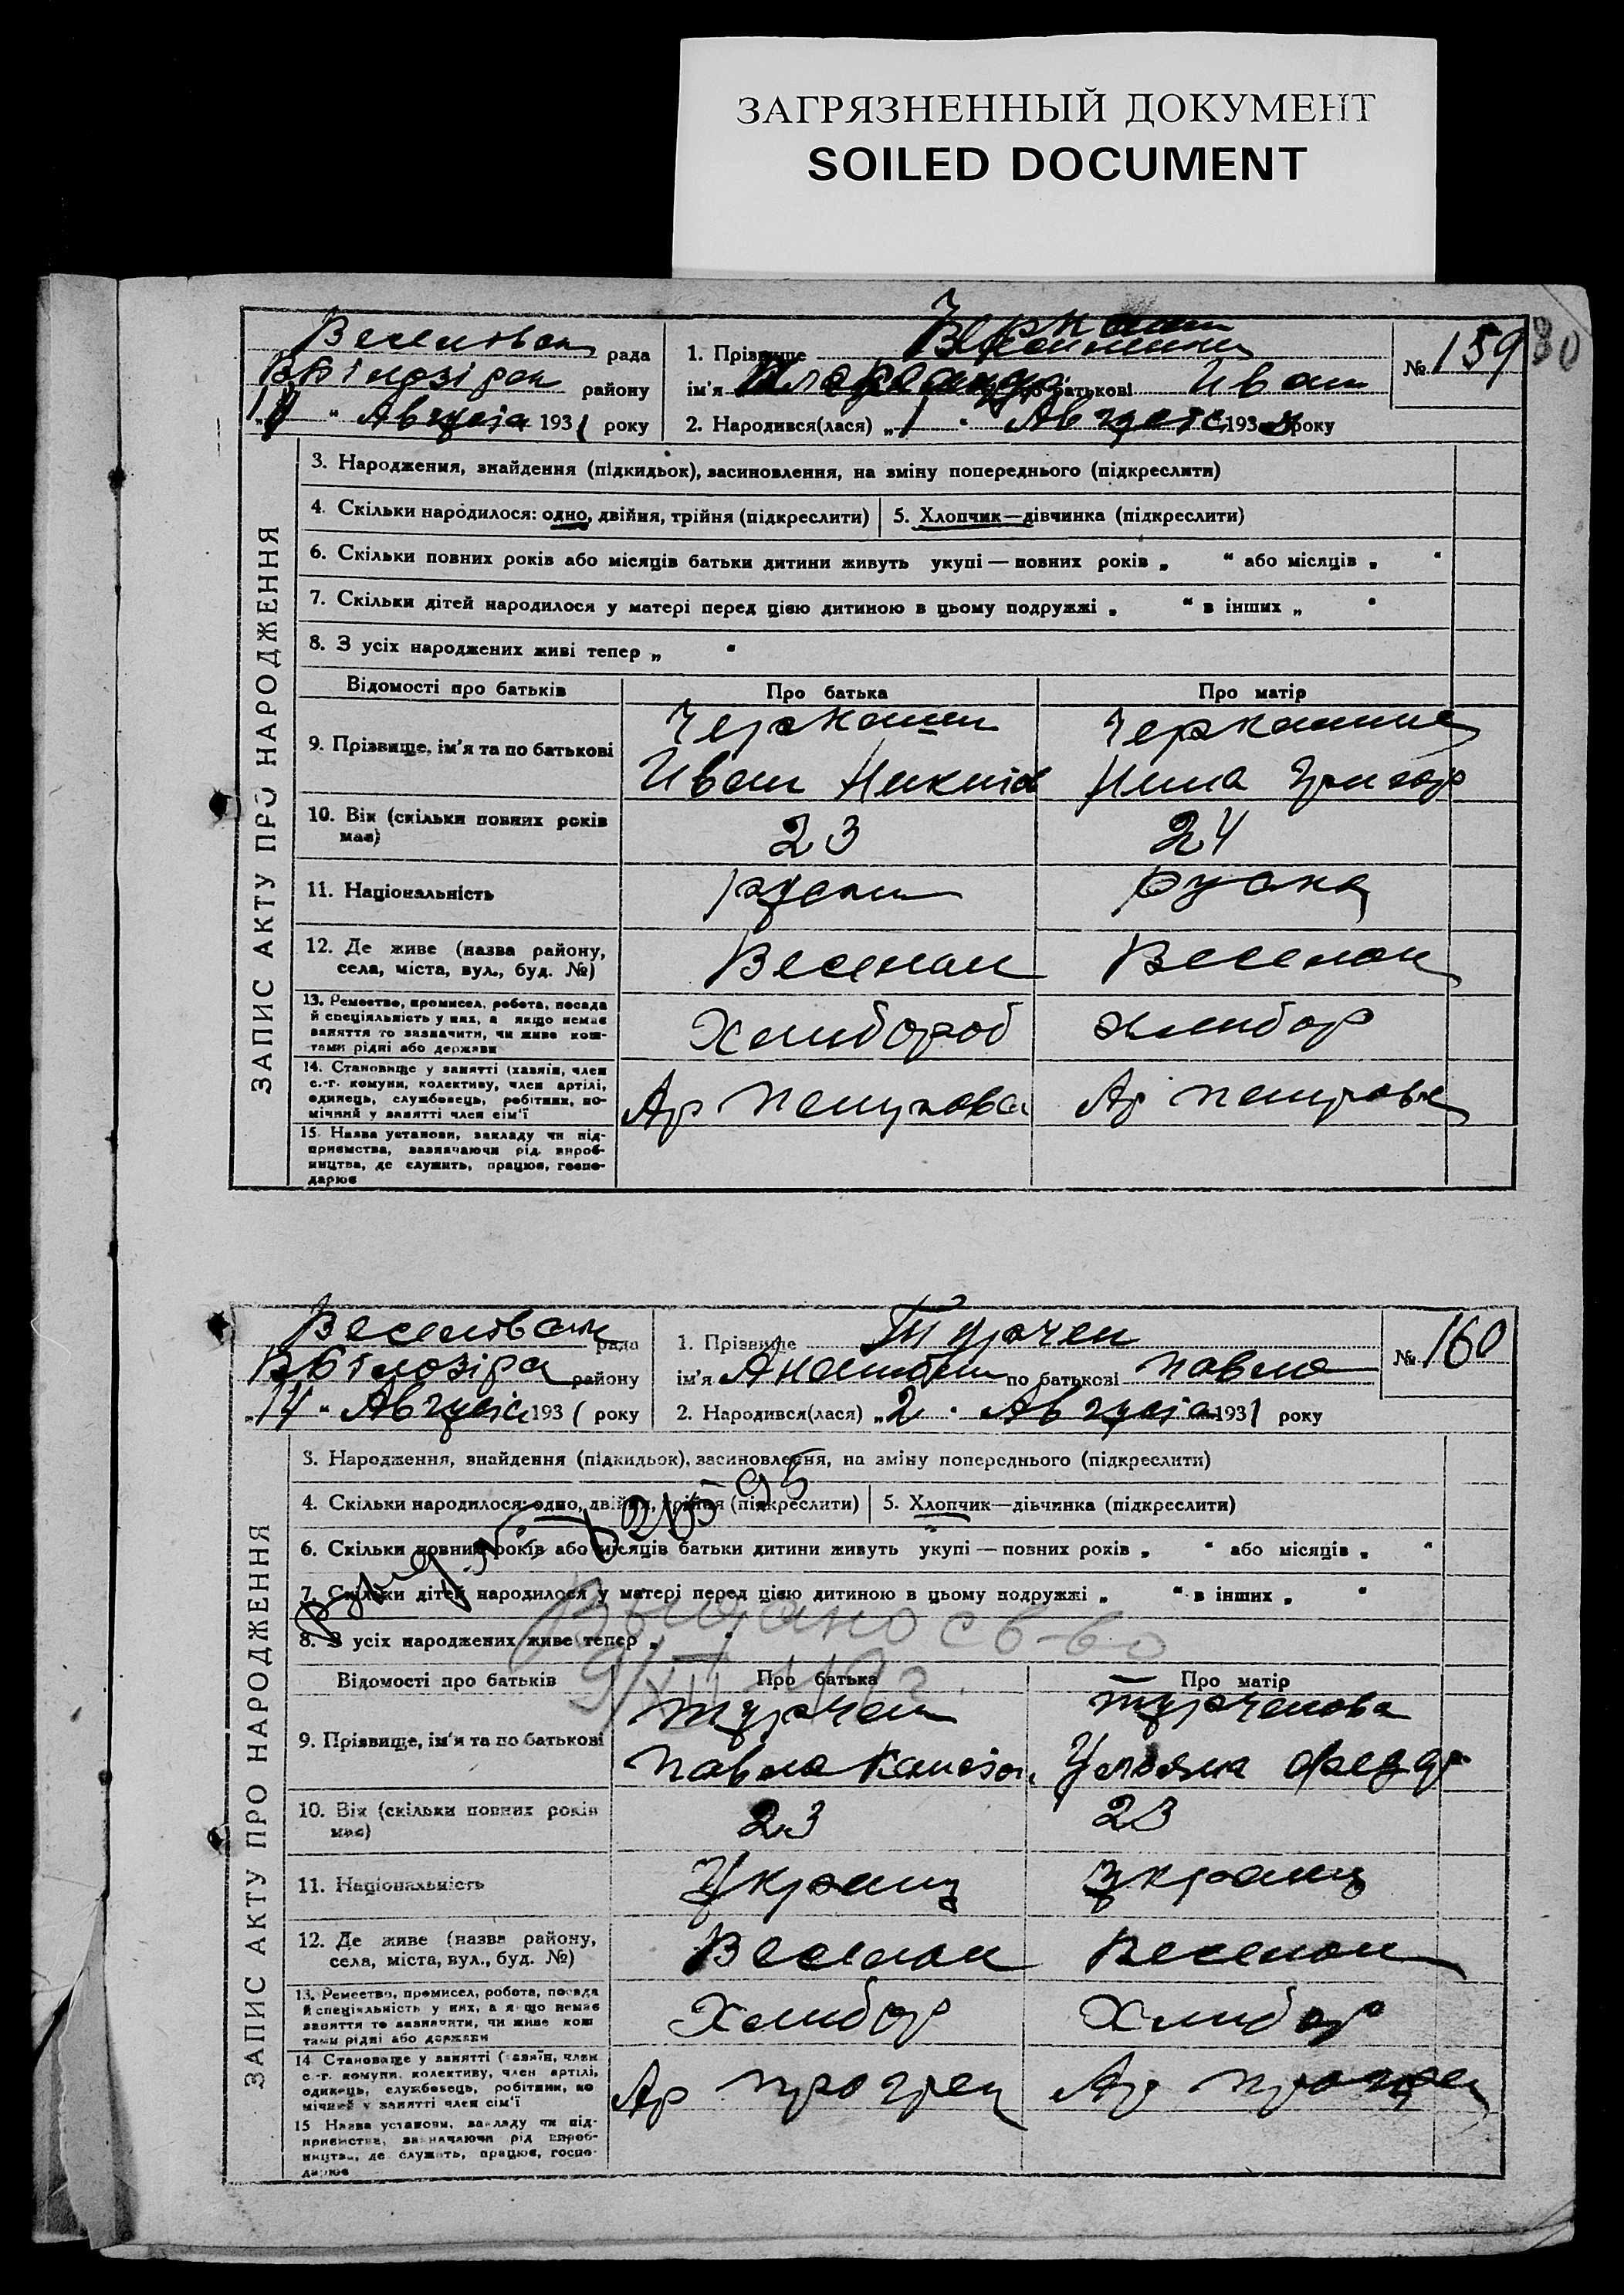 ЗАГРЯЗНЕННЫЙ ДОКУМЕНТ
SOILED DOCUMENT
80
рада
1. Прізвище Черкашин
№ 159
району
ім'я по батькові Иван
14 " Августа 1931 року
2. Народився(лася) „1 " Августа 193 року
ЗАПИС АКТУ ПРО НАРОДЖЕННЯ
3. Народження, знайдення (підкидьок), засиновлення, на зміну попереднього (підкреслити)
4. Скільки народилося: одно, двійня, трійня (підкреслити)
5. Хлопчик—дівчинка (підкреслити)
6. Скільки повних років або місяців батьки дитини живуть укупі — повних років „ “ або місяців „ “
7. Скільки дітей народилося у матері перед цією дитиною в цьому подружжі „ “ в інших „ “
8. З усіх народжених живі тепер „ “
Відомості про батьків
Про батька
Про матір
9. Прізвище, ім'я та по батькові
Черкашин
Иван Никита
Черкашина
Нина Григор
10. Вік (скільки повних років
має)
23
24
11. Національність
руска
12. Де живе (назва району,
села, міста, вул., буд. №)
13. Ремество, промисел, робота, посада
й спеціяльність у них, а якщо немає
заняття то зазначити, чи живе кош-
тами рідні або держави
Хлибороб
хлибор
14. Становище у занятті (хазяїн, член
с.-г. комуни, колективу, член артілі,
одинець, службовець, робітник, по-
мічний у занятті член сім'ї
Ар Петровс
Ар Петровс
15. Назва установи, закладу чи під-
приємства, зазначаючи рід вироб-
ництва, де служить, працює, госпо-
дарює
рада
1. Прізвище Турчен
№ 160
району
ім'я по батькові Павло
„14 " Августа 1931 року
2. Народився(лася) „2 " Августа 1931 року
ЗАПИС АКТУ ПРО НАРОДЖЕННЯ
3. Народження, знайдення (підкидьок), засиновлення, на зміну попереднього (підкреслити)
4. Скільки народилося: одно, двійня, трійня (підкреслити)
5. Хлопчик—дівчинка (підкреслити)
6. Скільки повних років або місяців батьки дитини живуть укупі — повних років „ “ або місяців „ “
7. Скільки дітей народилося у матері перед цією дитиною в цьому подружжі „ “ в інших „ “
Выдано св-во
8. З усіх народжених живе тепер „ “
Відомості про батьків
Про батька
Про матір
9. Прізвище, ім'я та по батькові
Турчен
Павло
Турченова
Ульяна Федор
10. Вік (скільки повних років
має)
23
23
11. Національність
Украинц
Украинц
12. Де живе (назва району,
села, міста, вул., буд. №)
13. Ремество, промисел, робота, посада
й спеціяльність у них, а якщо немає
заняття то зазначити, чи живе кош
тами рідні або держави
Хлибор
Хлибор
14 Становище у занятті (хазяїн, член
с.-г. комуни, колективу, член артілі,
одинець, службовець, робітник, по
мічний у занятті член сім'ї
Ар прогрес
Ар прогрес
15 Назва установи, закладу чи під-
приємства, зазначаючи рід вироб-
ництва, де служить, працює, госпо-
дарює